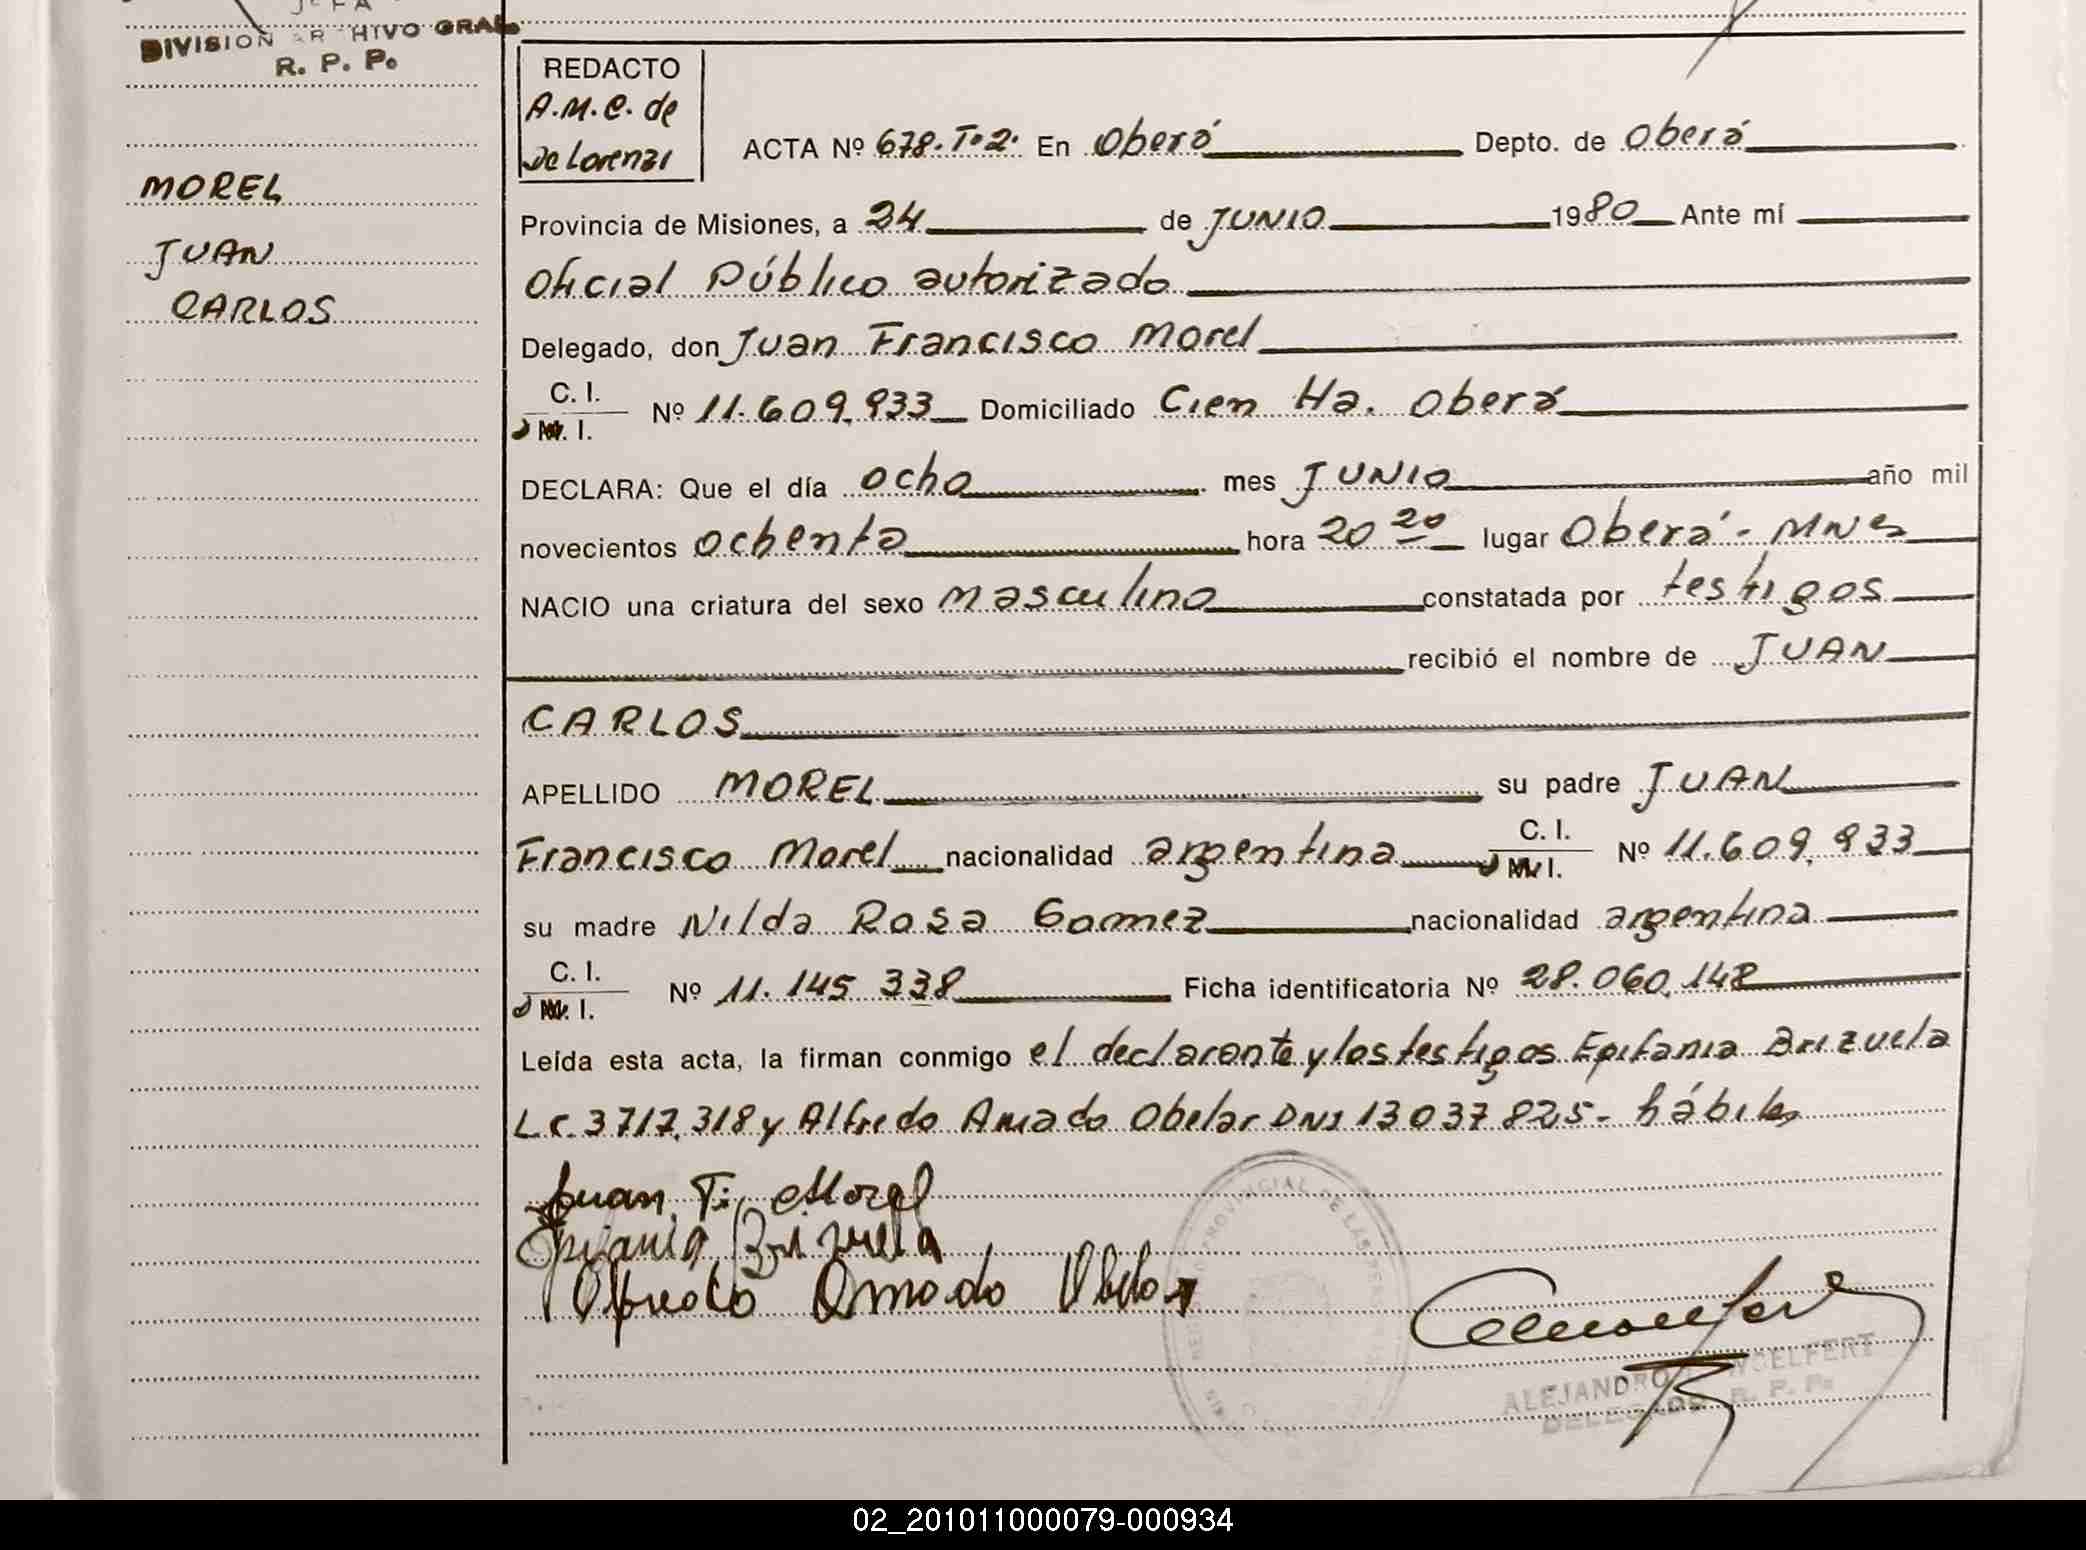 DIVISION ARCHIVO GRAL.
R. P. P.
MOREL
JUAN
CARLOS
REDACTO
A.M.C. de
De Lorenzi
ACTA Nº 678. Tº 2. En Oberá Depto. de Oberá
Provincia de Misiones, a 24 de JUNIO 1980 Ante mí
Oficial Público autorizado
Delegado, don Juan Francisco Morel
C. I.
M. I. Nº 11.609.933 Domiciliado Cien Ha. Oberá
DECLARA: Que el día ocho mes JUNIO año mil
novecientos ochenta hora 20 20 lugar Oberá - MNES
NACIO una criatura del sexo masculino constatada por testigos
recibió el nombre de JUAN
CARLOS
APELLIDO MOREL su padre JUAN
Francisco Morel nacionalidad argentina C. I. M. I. Nº 11.609.933
su madre Nilda Rosa Gomez nacionalidad argentina
C. I.
M. I. Nº 11.145 338 Ficha identificatoria Nº 28.060.148
Leída esta acta, la firman conmigo el declarante y los testigos Epifania Brizuela
L.C. 3717.318 y Alfredo Amado Obelar DNI 13037825- hábiles
Juan F. Morel
Epifania Brizuela
Alfredo Amado Obelar
PROVINCIAL DE LAS
ALEJANDRO WOELFERT
DELEGADO R. P. P.
02_201011000079-000934